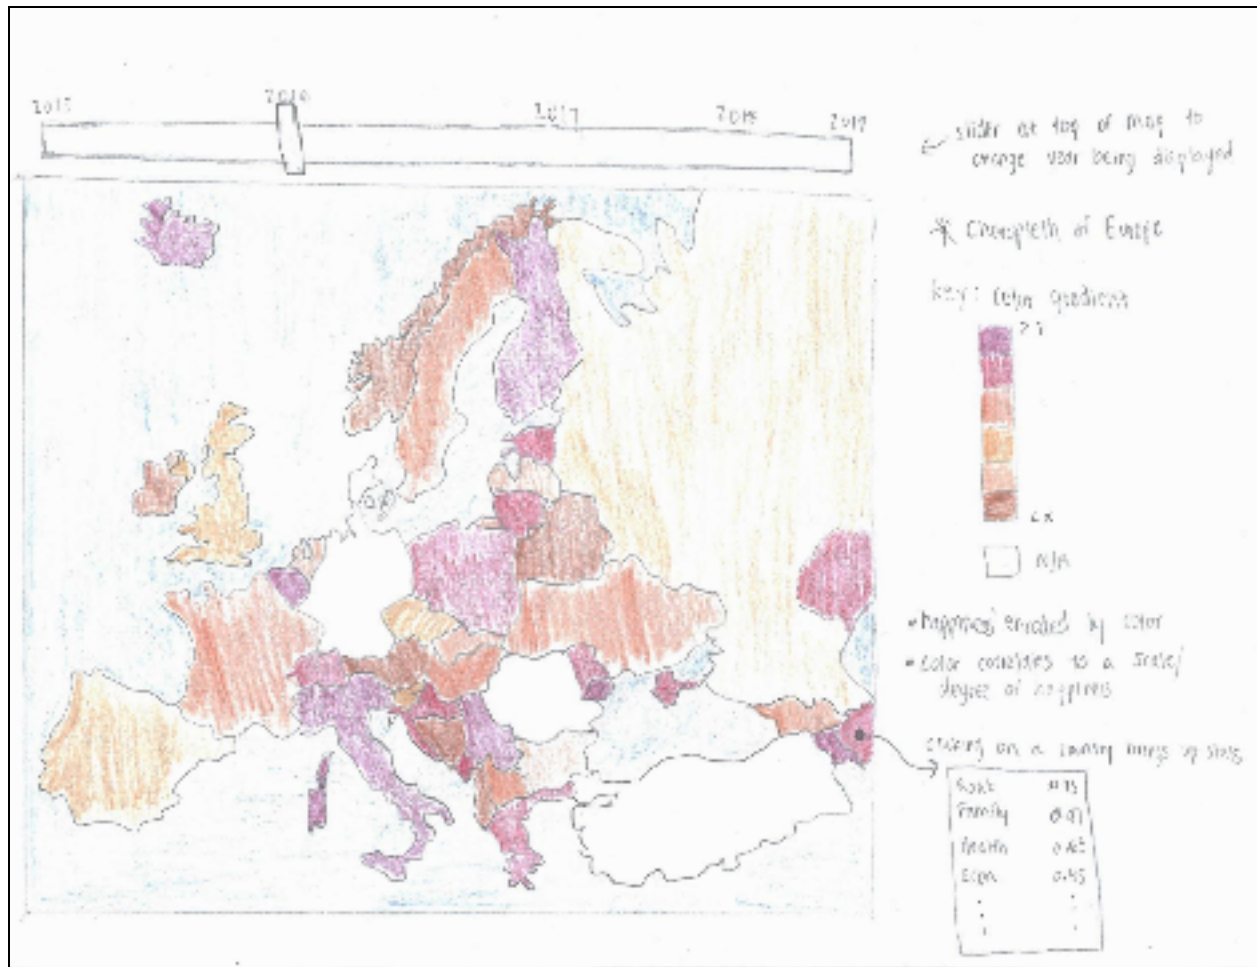 2015 2016 2017 2018 2019
slider at top of map to
change year being displayed
* Choropleth of Europe
key: Color gradient
N/A
• happiness encoded by color
• color coincides to a scale/
degree of happiness
clicking on a country brings up stats
Rank
Family
Health
Econ 0.45